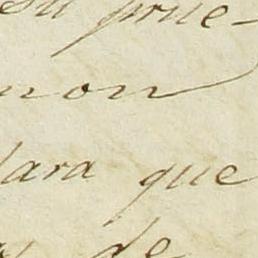 su prue-
non
lara que
de